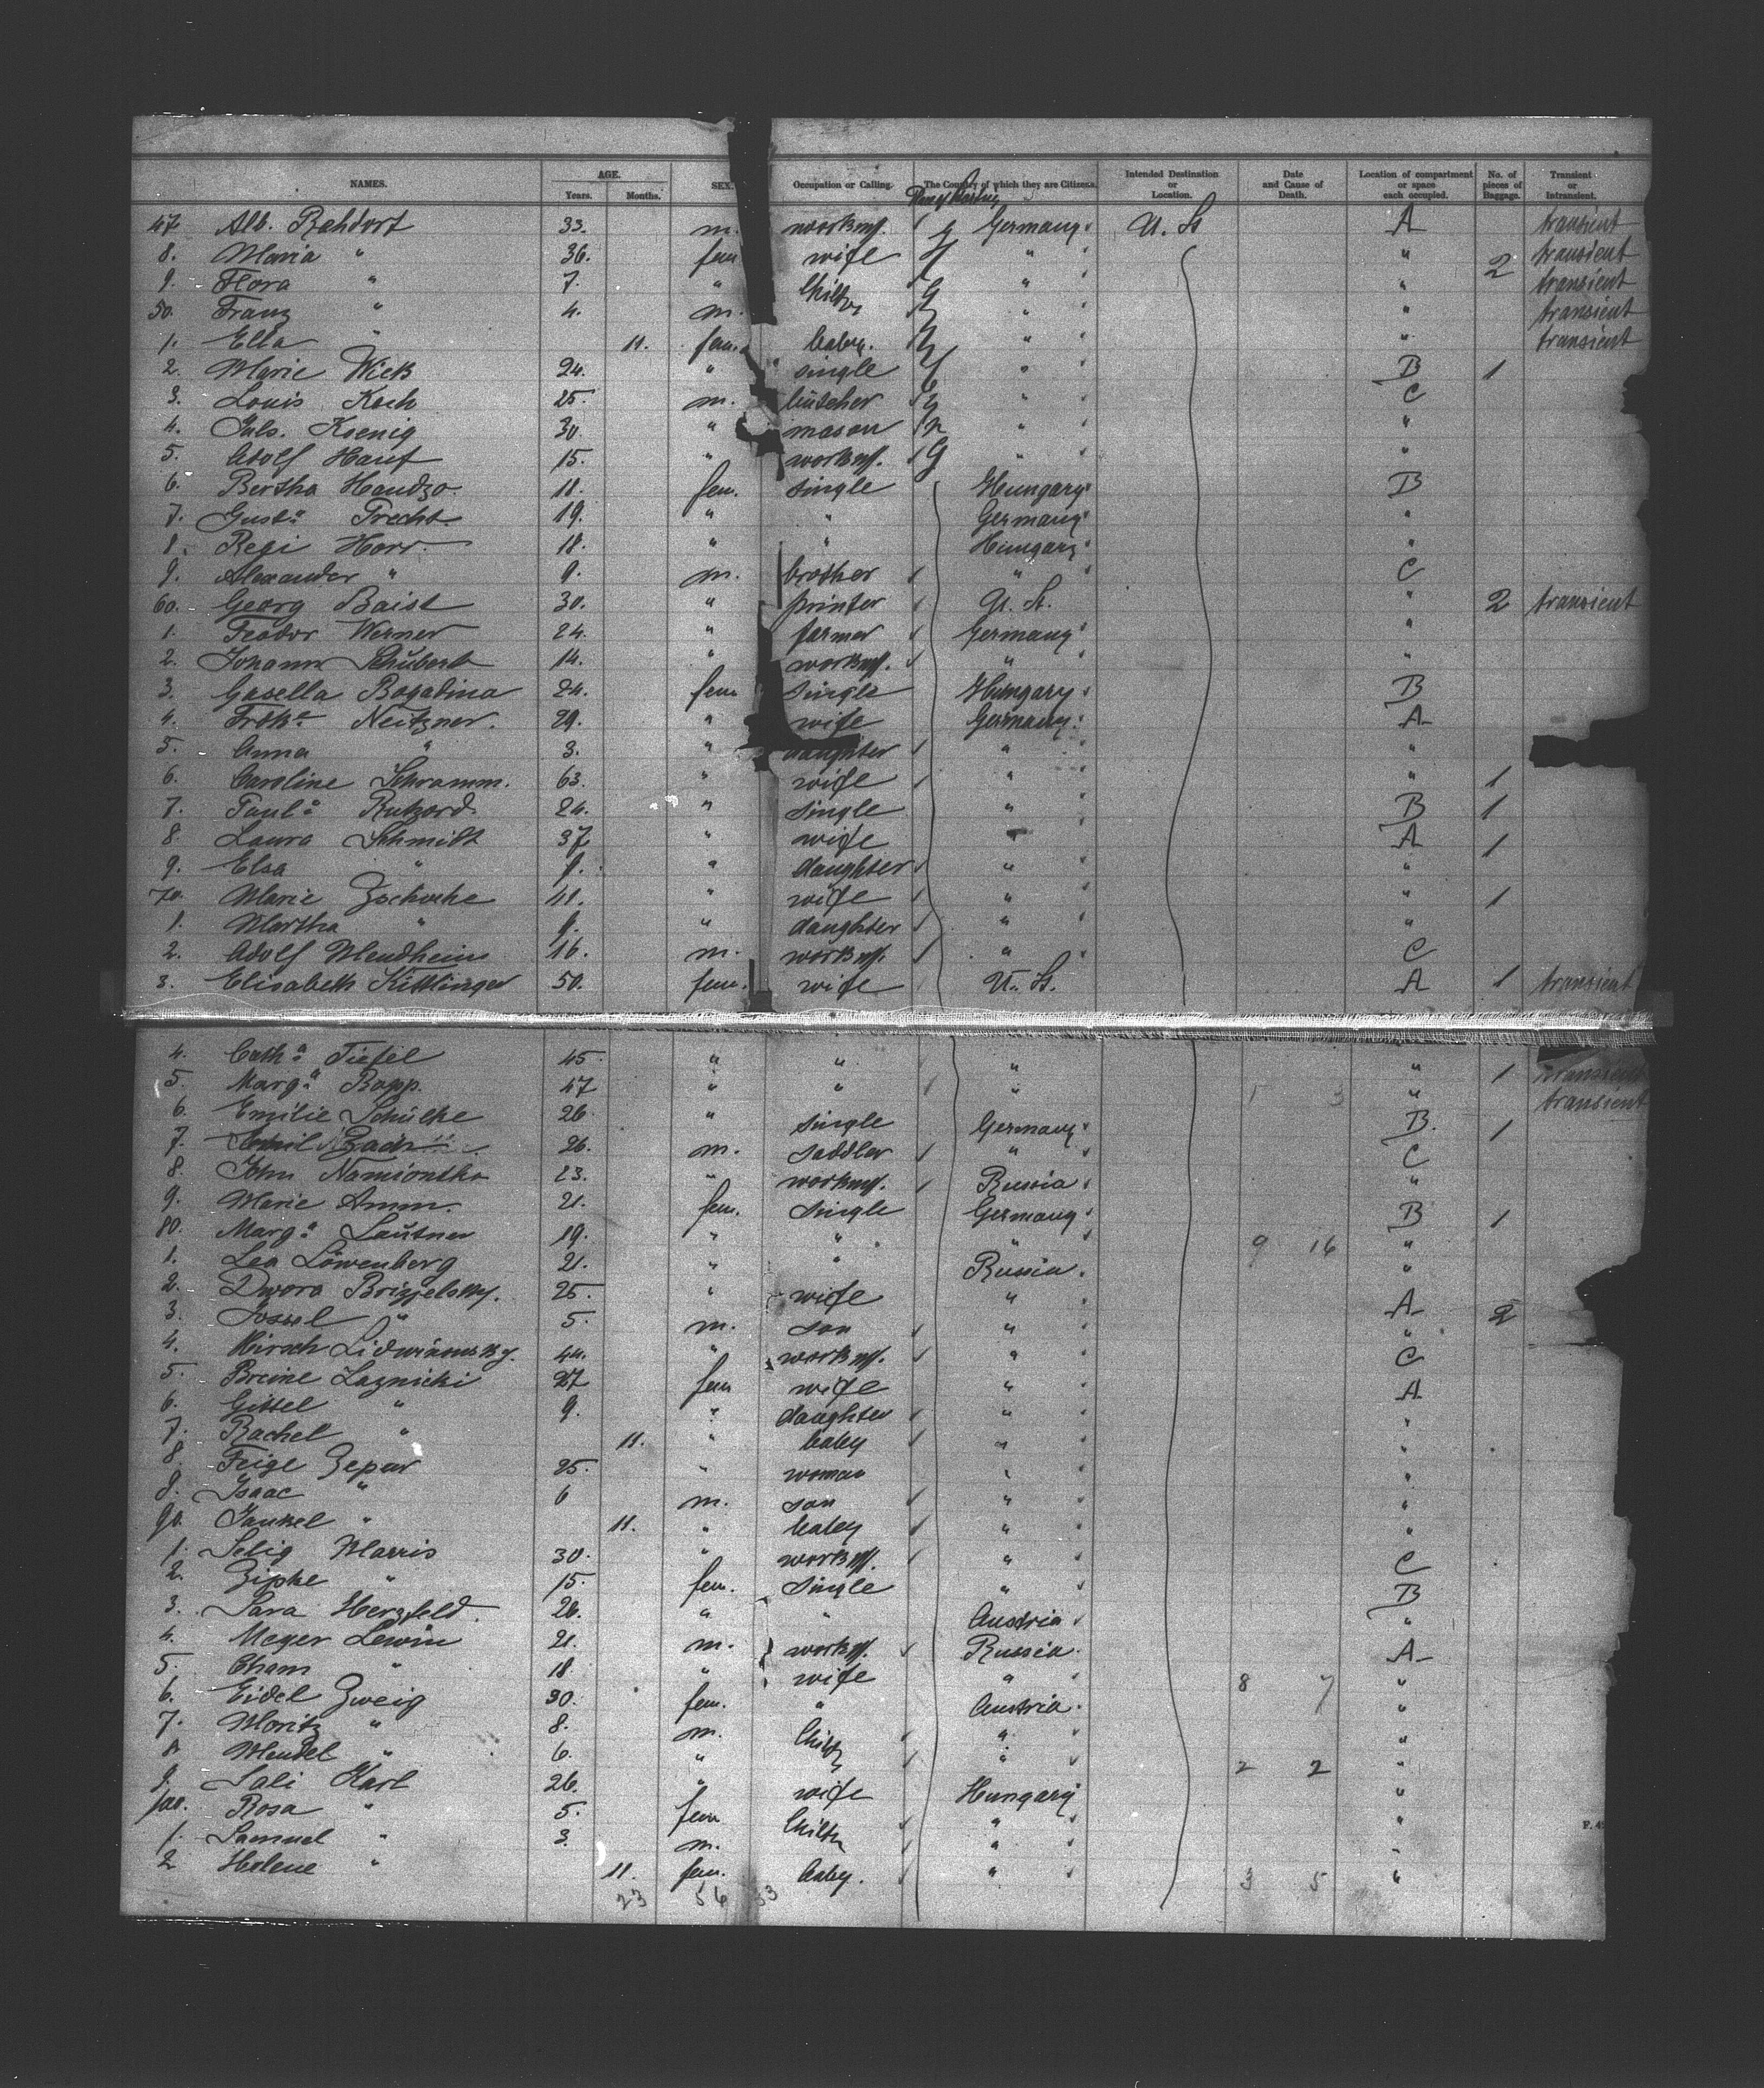 NAMES. AGE. Years. Months. SEX. Occupation or Calling. The Country of which they are Citizens. Intended Destination or Location. Date and Cause of Death. Location of compartment or space each occupied. No. of pieces of Baggage. Transient or Intransient.
47 Alb. Rehdorf 33. m. workm. Germany U. St. A transient
8. Maria " 36. fem wife " " 2 transient
9. Flora " 7. " Childr " " transient
50. Franz " 4. m. " " transient
1. Ella " 11. fem. baby. " " transient
2. Marie Wick 24. " single " B 1
3. Louis Koch 25. m. butcher " C
4. Juls. Koenig 30. " mason " "
5. Adolf Hauf 15. " workm. " "
6. Bertha Handzo. 18. fem. single Hungary B
7. Gusta Trecht 19. " " Germany "
8. Regi Horr. 18. " " Hungary "
9. Alexander " 9. m. brother " C
60. Georg Baist 30. " printer U. St. " 2 transient
1. Teodor Werner 24. " farmer Germany "
2. Johann Schubert 14. " workm. " "
3. Gasella Bogadina 24. fem single Hungary B
4. Neitzner. 29. " wife Germany A
5. Anna " 3. " daughter " "
6. Caroline Schramm. 63. " wife " " 1
7. Paula Rutzord. 24. " single " B 1
8 Laura Schmidt 37 " wife " A 1
9. Elsa " " daughter " "
70. Marie Zschoche 41. " wife " " 1
1. Martha " " daughter " "
2. Adolf Mendheim 16. m. workm. " C
3. Elisabeth Kittlinger 50. fem. wife U. St. A 1 transient
4. Catha Tiefel 45. " " " " 1 transient
5. Marga Rapp. 47 " " " 1 3 " transient
6. Emilie Schülke 26 " single Germany B. 1
7. Emil 26. m. saddler " C
8. John Namiontko 23. " workm. Russia "
9. Marie Amm. 21. fem. single Germany B 1
80. Marga Lautner 19. " " " 9 16 "
1. Lea Löwenberg 21. " " Russia. "
2. Dwora Brizzelsky. 25. " wife " A 2
3. Jossel " 5. m. son " "
4. Hirsch 44. " workm. " C
5. Breine Laznicki 27 fem wife " A
6. Gittel " 9. " daughter " "
7. Rachel " 11. " baby " "
8. Feige Zepar 25. " woman " "
9. Isaac " 6 m. son " "
90. Jankel " 11. " baby " "
1. Selig Marris 30. " workm. " C
2. Zipke " 15. fem. single " B
3. Sara Herzfeld. 26. " " Austria "
4. Meyer Lewin 21. m. workm. Russia. A
5. Cham " 18 " wife " 8 7 "
6. Eidel Zweig 30. fem. " Austria. "
7. Moritz " 8. m. Childr " "
8 Mendel " 6. " " 2 2 "
9. Sali Karl 26. " wife Hungary "
100. Rosa " 5. fem Childr " "
1. Samuel " 3. m. " "
2 Helene " 11. fem. baby. " 3 5 "
23 56 33